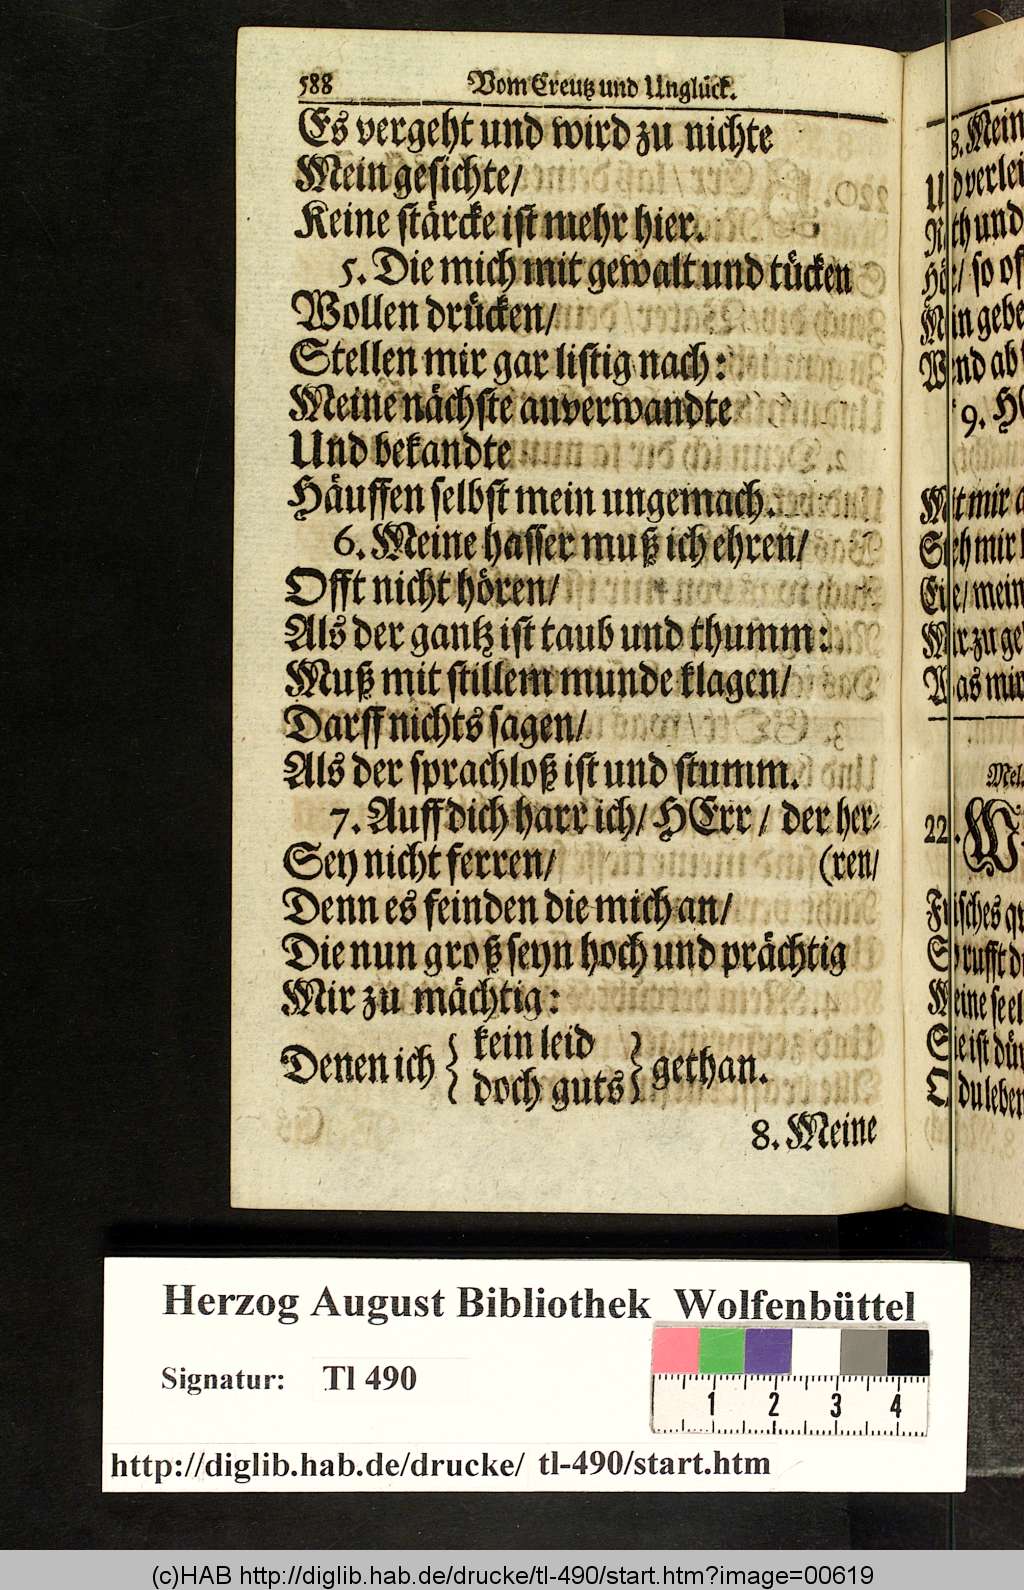 588 Vom Creutz und Unglück.
Es vergeht und wird zu nichte
Mein gesichte/
Keine stärcke ist mehr hier.
5. Die mich mit gewalt und tücken
Wollen drücken/
Stellen mir gar listig nach:
Meine nächste anverwandte
Und bekandte
Häuffen selbst mein ungemach.
6. Meine hasser muß ich ehren/
Offt nicht hören/
Als der gantz ist taub und thumm:
Muß mit stillem munde klagen/
Darff nichts sagen/
Als der sprachloß ist und stumm.
7. Auff dich harr ich/ HErr/ der her-
Sey nicht ferren/ (ren/
Denn es feinden die mich an/
Die nun groß seyn hoch und prächtig
Mir zu mächtig:
Denen ich { kein leid
doch guts } gethan.
8. Meine
8. Mein
9.
Herzog August Bibliothek Wolfenbüttel
Signatur: Tl 490
1 2 3 4
http://diglib.hab.de/drucke/ tl-490/start.htm
(c)HAB http://diglib.hab.de/drucke/tl-490/start.htm?image=00619